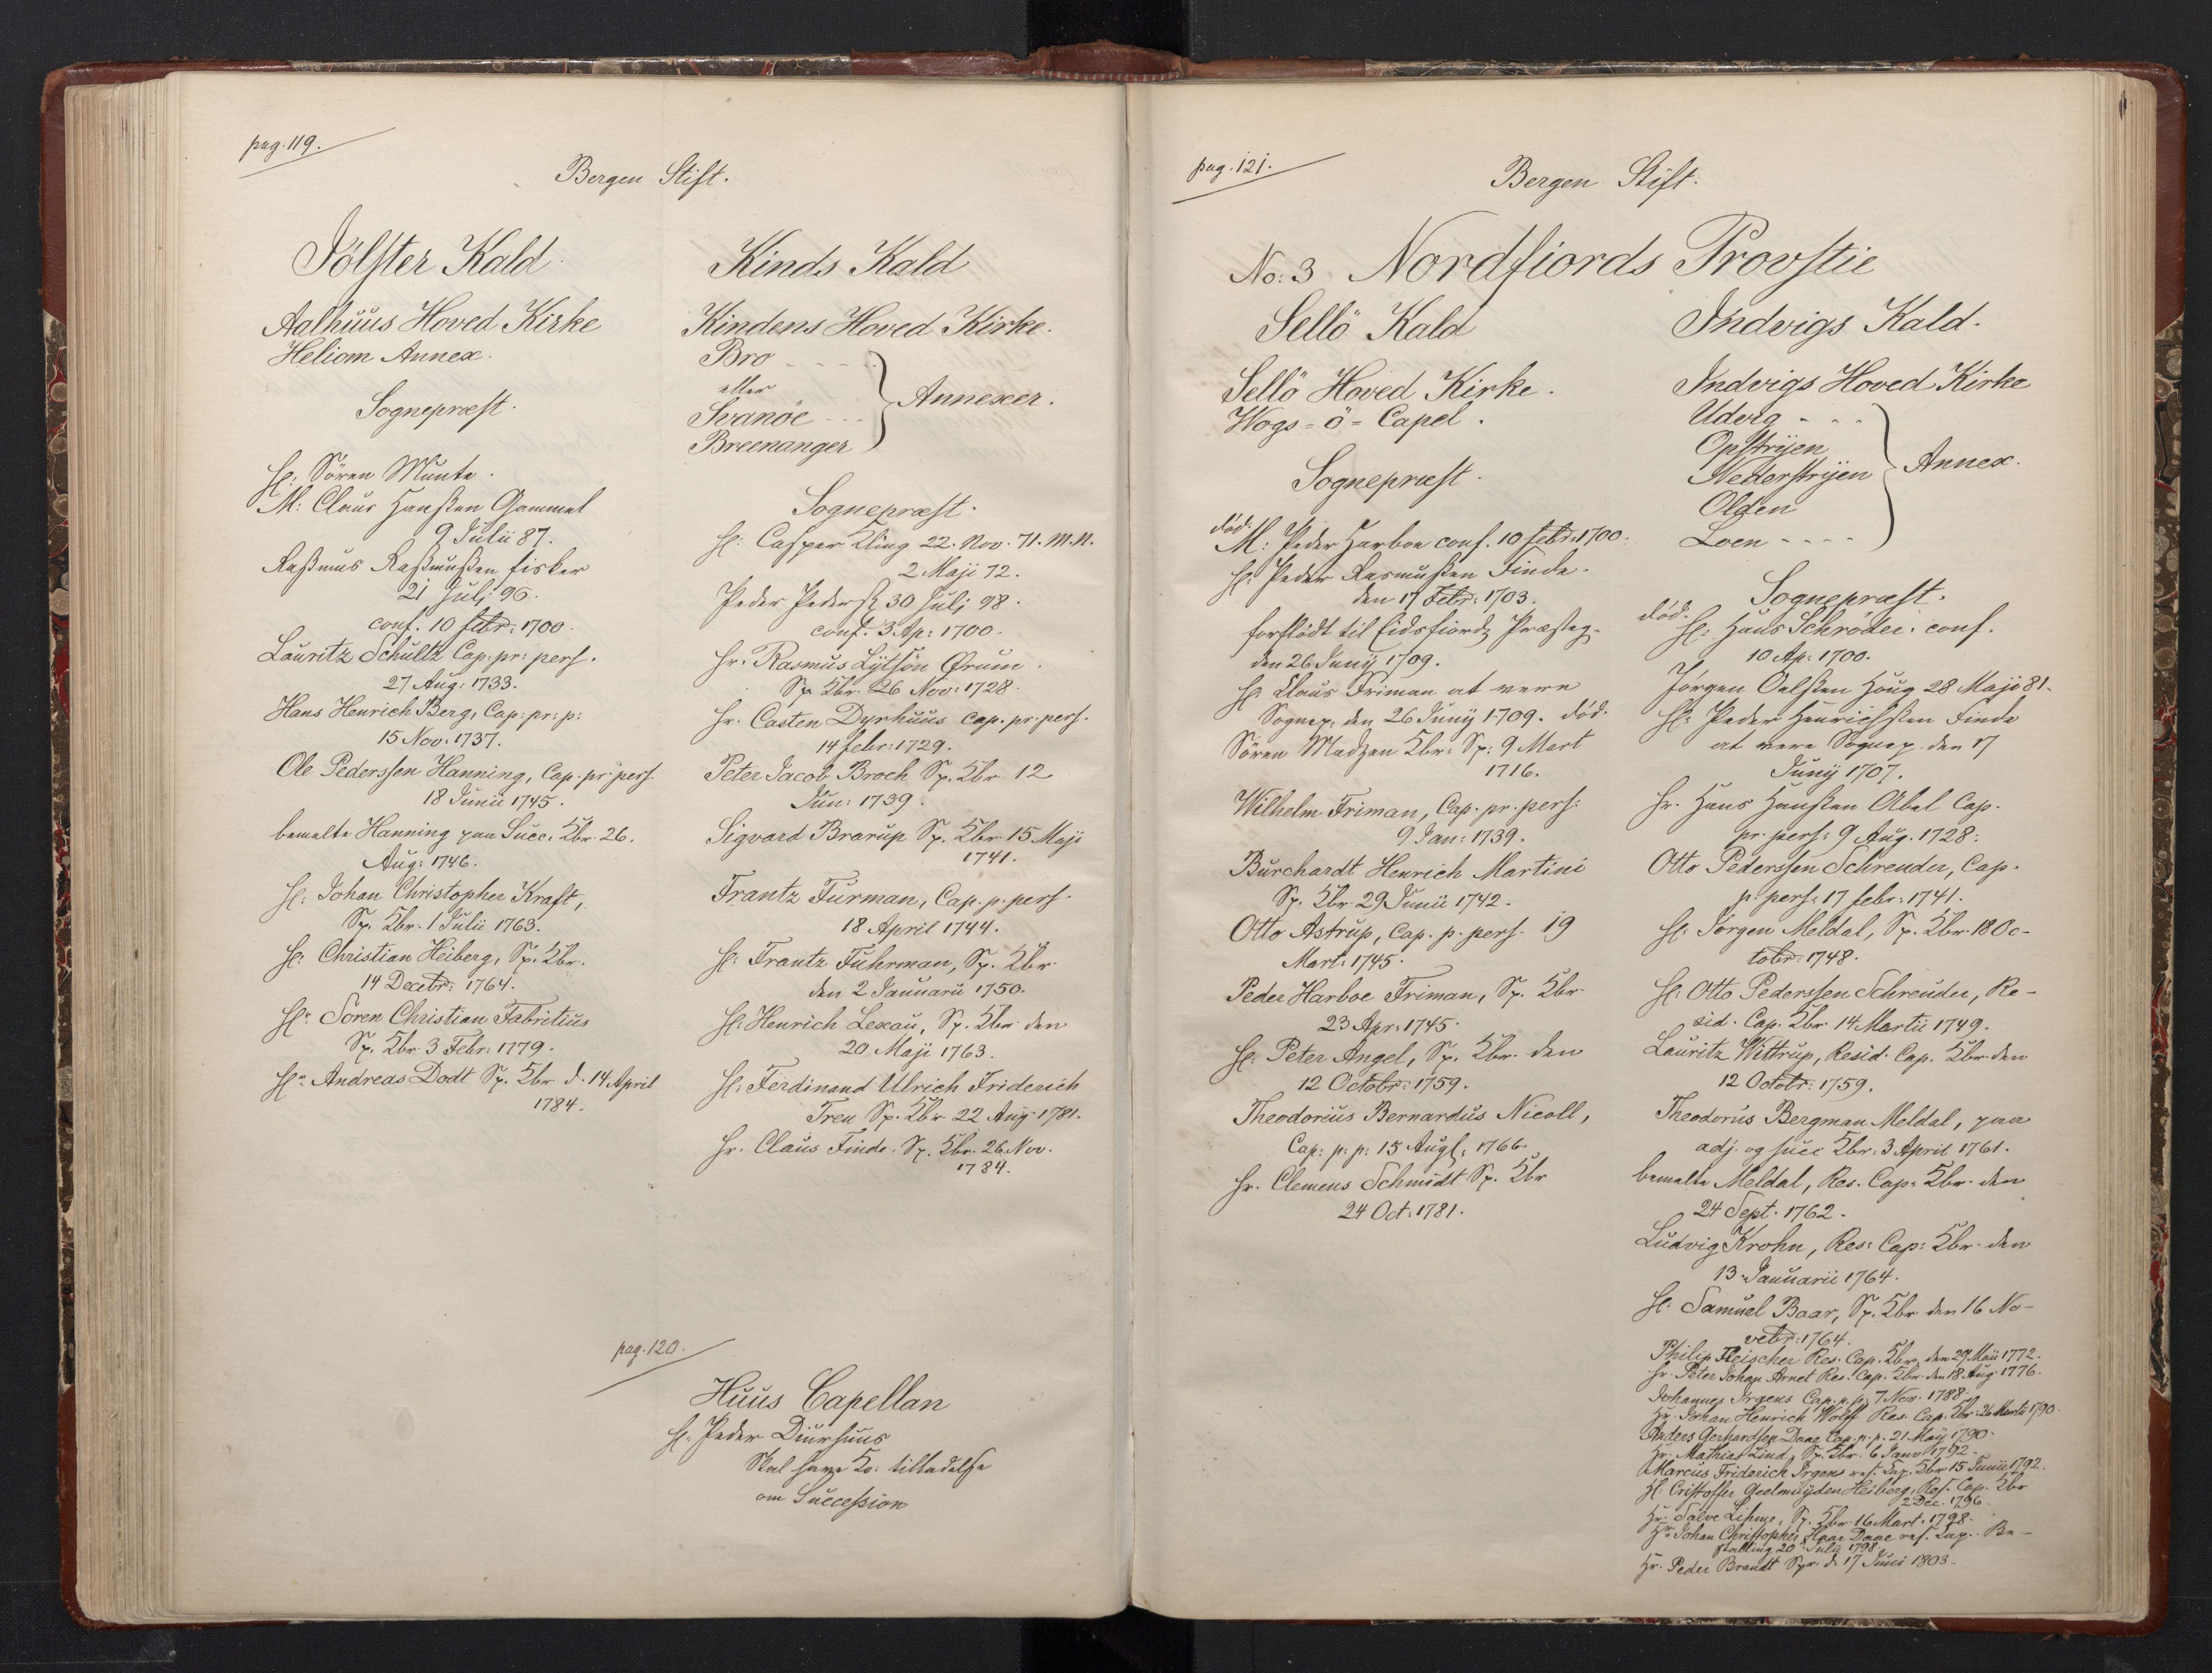 pag. 119.
Bergen Stift.
Jölster Kald.
Aalhuus Hoved Kirke
Heliom Annex.
Sognepræst.
H: Sören Munte.
M: Claus Hanßen Gammel
9 Julii 87.
Raßmus Raßmußen fisker
21 Julj 96.
conf. 10 febr: 1700.
Lauritz Schultz Cap: pr: pers.
27 Aug: 1733.
Hans Henrich Berg, Cap: pr: p:
15 Nov: 1737.
Ole Pederssen Hanning, Cap. pr. pers.
18 Junii 1745.
bemelte Hanning paa Succ. Kbr. 26.
Aug: 1746.
H: Johan Christopher Kraft,
Sp. Kbr. 1 Julii 1763.
H: Christian Heiberg, Sp. Kbr.
14 Decebr: 1764.
Hr Sören Christian Fabritius
Sp. Kbr. 3 Febr: 1779.
Hr Andreas Dodt Sp. Kbr d. 14 April
1784.
Kinds Kald
Kindens Hoved Kirke.
Bro - - - -
eller
Svanöe - - -
Breenanger
Annexer.
Sognepræst.
H: Casper Kling 22. Nov. 71. M.N.
2 Maji 72.
Peder Peders. 30 Julj 98.
conf. 3 Ap: 1700.
Hr. Rasmus Lytsön Ørum.
Sp. Kbr. 26 Nov: 1728.
Hr. Casten Dyrhuus cap. pr. pers.
14 febr: 1729.
Peter Jacob Broch Sp. Kbr 12
Jun: 1739.
Sigvard Brarup Sp. Kbr. 15 Maji
1741.
Frantz Furman, Cap. p. pers.
18 April 1744.
H: Frantz Fuhrman, Sp. Kbr
den 2 Januarii 1750.
H: Henrich Lexau, Sp. Kbr den
20. Maji 1763.
H: Ferdinand Ulrich Friderich
Treu Sp. Kbr 22 Aug. 1781.
Hr. Claus Finde. Sp. Kbr. 26. Nov.
1784.
pag. 120.
Huus Capellan
H: Peder Diurhuus
Skal have Ko: tilladelse
om Succession
pag. 121.
Bergen Stift.
No: 3 Nordfiords Provstie
Sellö Kald
Sellö Hoved Kirke.
Wogs-ö-Capel.
Sognepræst.
död. M: Peder Harboe conf. 10 febr: 1700.
H: Peder Rasmußen Finde.
den 17 Febr: 1703.
forflödt til Eidsfiords Præsteg.
den 26 Junij 1709.
Hr Claus Friman at være
Sognep: den 26 Junij 1709. död.
Sören Madzen Kbr: Sp: 9 Mart
1716.
Wilhelm Friman, Cap. pr. pers:
9 Jan: 1739.
Burchardt Henrich Martini
Sp. Kbr 29 Junii 1742.
Otto Astrup, Cap. p. pers. 19
Mart: 1745.
Peder Harboe Friman, Sp. Kbr
23 Apr: 1745.
H: Peter Angel, Sp. Kbr. den
12 Octobr: 1759.
Theodorius Bernardus Nicoll,
Cap: p: p: 15 Augt: 1766.
Hr. Clemens Schmidt Sp. Kbr
24 Oct: 1781.
Indvigs Kald.
Indvigs Hoved Kirke
Udvig - - -
Opstrijen
Nederstrijen
Olden
Loen - - - -
Annex.
Sognepræst.
död. H: Hans Schröder. conf.
10 Ap: 1700.
Jörgen Oelßen Houg 28 Maji 81.
H: Peder Henrichßen Finde
at være Sognep. den 17
Junij 1707.
Hr. Hans Hanßen Abel Cap.
pr. pers: 9 Aug. 1728.
Otto Pederssen Schreuder, Cap.
p. pers: 17 febr: 1741.
H: Jörgen Meldal, Sp. Kbr. 18 Oc-
tobr: 1748.
H: Otto Pederssen Schreuder, Re-
sid. Cap. Kbr 14 Martii 1749.
Lauritz Wittrup, Resid. Cap. Kbr den
12 Octobr: 1759.
Theodorus Bergman Meldal, paa
adj. og succ Kbr: 3 April 1761.
bemelte Meldal, Res. Cap: Kbr. den
24 Sept. 1762.
Ludvig Krohn, Res: Cap: Kbr. den
13 Januarii 1764.
H: Samuel Baar, Sp. Kbr den 16 No-
vebr: 1764.
Philip Fleischer Res. Cap. Kbr. den 29 Maii 1772.
Hr. Peter Johan Arnet Res. Cap. Kbr. den 18 Aug 1776.
Johannes Irgens Cap. p. p. 7 Nov. 1788.
Hr Johan Henrich Wolff Res. Cap. Kbr. 26 Martii 1790.
Anders Gerhardsen Daae Cap. p. p. 21. Maij 1790.
Hr. Mathias Lind, Sp. Kbr. 6 Janv 1792.
Marcus Friderich Irgens res. Cap. Kbr 15 Junii 1792.
H. Cristoffer Geelmuyden Heiberg, Res. Cap. Kbr
2 Dec. 1796.
Hr. Salve , Sp. Kbr. 16 Mart. 1798.
Hr. Johan Christopher Haar Daae res. Cap. Be-
stalling 20 Julii 1798
Hr. Peder Brandt Spr. d. 17 Juni 1803.